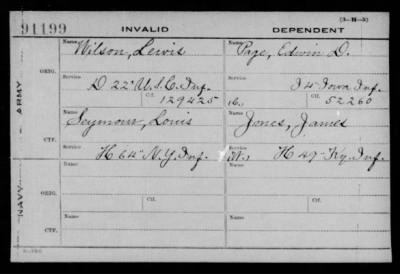 (3—H—3)
91199 INVALID DEPENDENT
Name Wilson, Lewis Name Page, Edwin D.
ORIG.
Service Service
D 22" U.S.C. Inf. I 4" Iowa Inf.
Ctf. 129425 Ctf. 52260
ARMY
Name Seymour, Louis Name Jones, James
CTF.
Service Service
H 64" N.Y. Inf. H 49" Ky. Inf.
Name Name
ORIG.
Service Service
Ctf. Ctf.
NAVY
Name Name
CTF.
Service Service